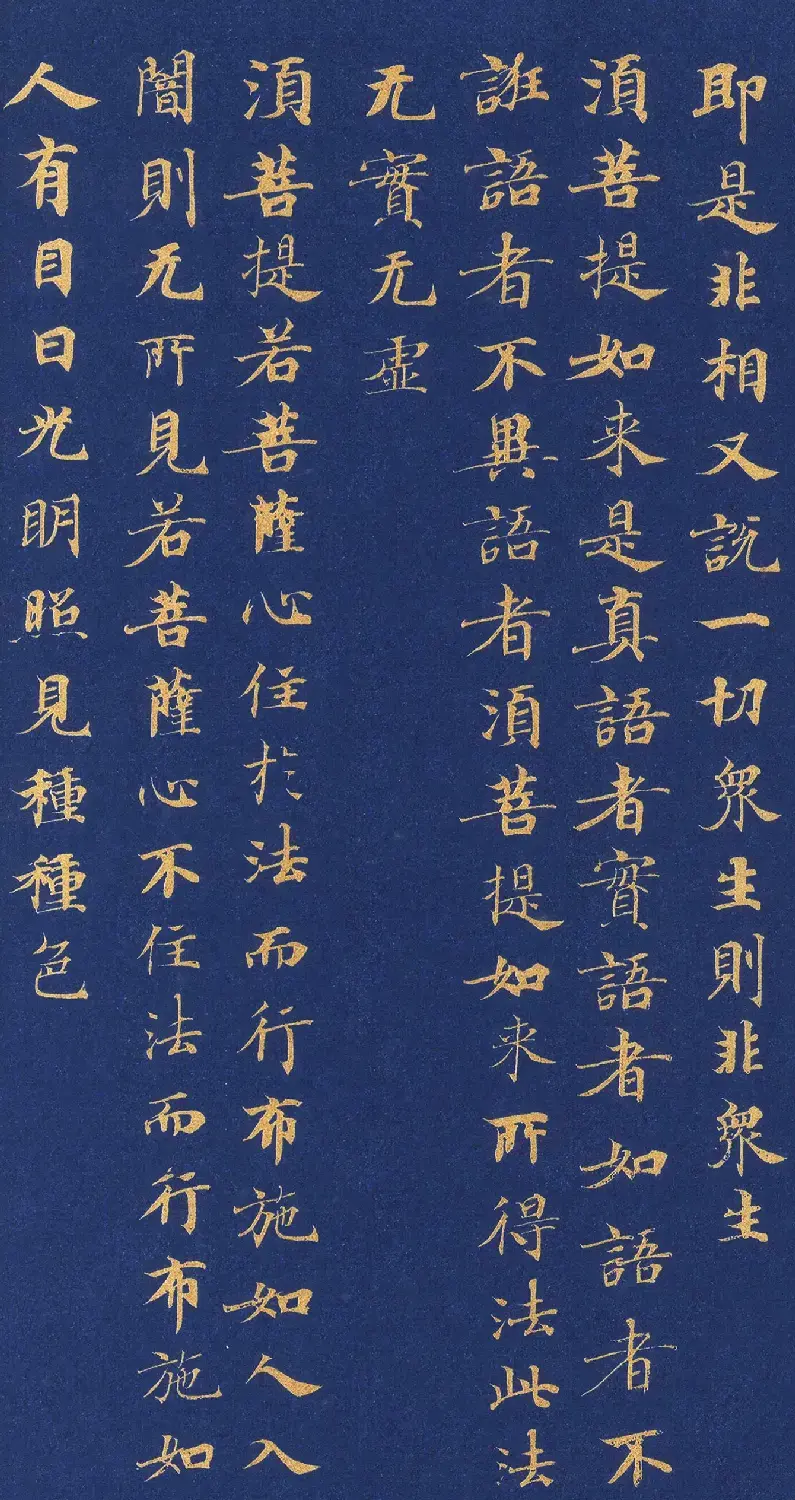 即是非相又說一切衆生則非衆生
湏菩提如来是真語者實語者如語者不
誑語者不異語者湏菩提如来所得法此法
无實无虛
湏菩提若菩薩心住於法而行布施如人入
闇則无所見若菩薩心不住法而行布施如
人有目日光明照見種種色